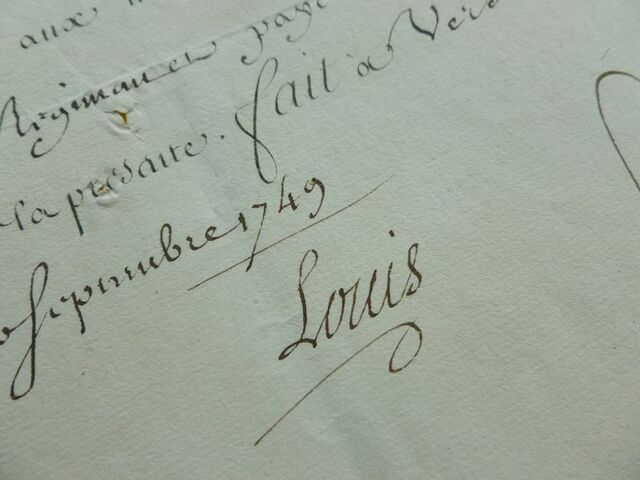 aux
Régiment et paye
la présente. fait à Vers
Septembre 1749
Louis